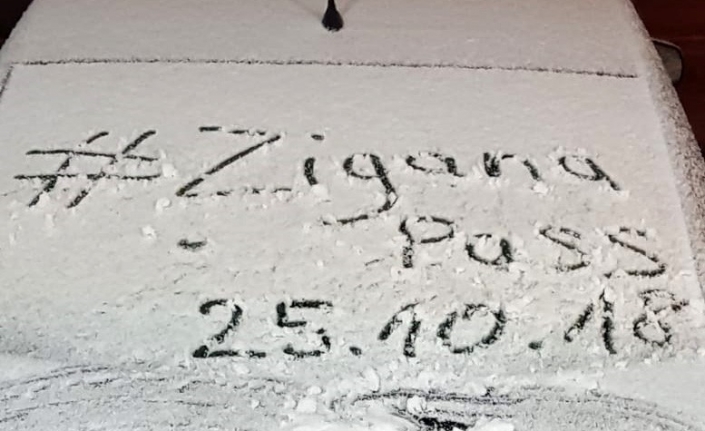 #Zigana
- Pass
25.10.18